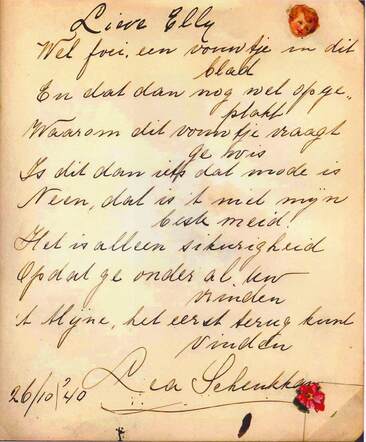 Lieve Elly
Wel foei, een vouwtje in dit
blad
En dat dan nog wel opge„
plakt
Waarom dit vouwtje vraagt
ge wis
Is dit dan iets dat mode is
Neen, dat is 't niet mijn
beste meid.
Het is alleen sikurigheid
Opdat ge onder al uw
vrinden
't Mijne, het eerst terug kunt
vinden
Lea Schenkkan
26/10/'40